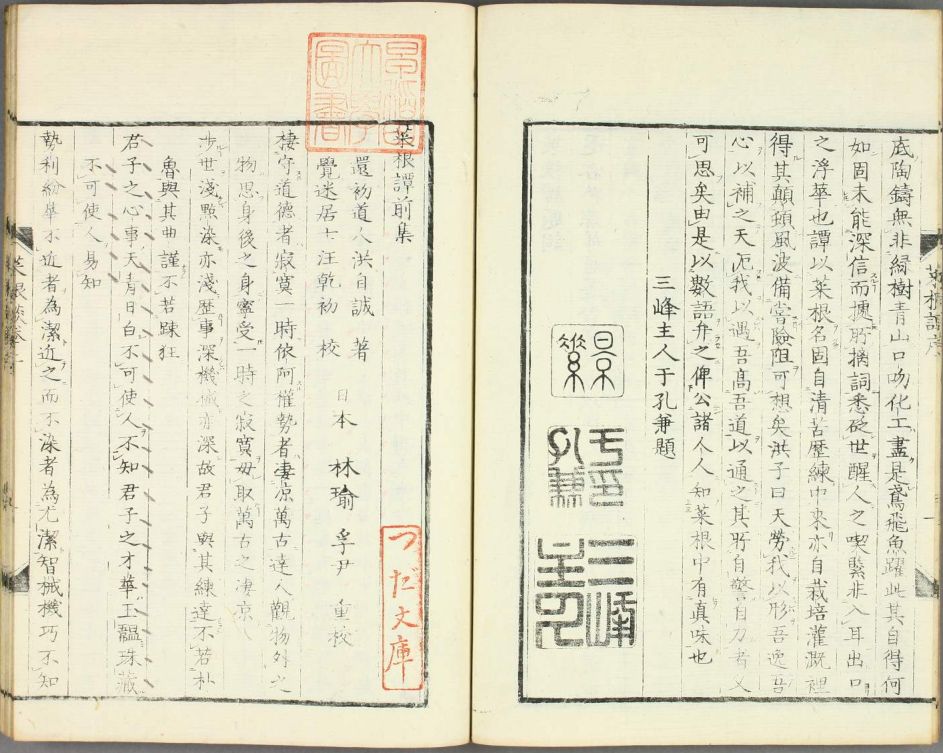 底陶鋳無非緑樹青山口吻化工盡是鳶飛魚躍此其自得何
如固未能深信而據所摛詞悉砭世醒人之喫緊非入耳出口
之浮華也譚以菜根名固自清苦歴練中來亦自栽培灌溉裡
得其顛頓風波備嘗險阻可想矣洪子曰天勞我以形吾逸吾
心以補之天厄我以遇吾高吾道以通之其所自警自力者又
可思矣由是以數語弁之俾公諸人人知菜根中有真味也
三峰主人于孔兼題
景紫
于孔兼印
三峰主人
菜根譚序
菜根譚前集
還初道人洪自誠著
覺迷居士汪乾初校
日本 林瑜 孚尹 重校
棲守道德者寂寞一時依阿權勢者凄凉萬古達人觀物外之
物思身後之身寧受一時之寂寞毋取萬古之凄凉
渉世淺點染亦淺歴事深機械亦深故君子與其練達不若朴
魯與其曲謹不若踈狂
君子之心事天青日白不可使人不知君子之才華玉韞珠藏
不可使人易知
勢利紛華不近者為潔近之而不染者為尤潔智械機巧不知
つだ文庫